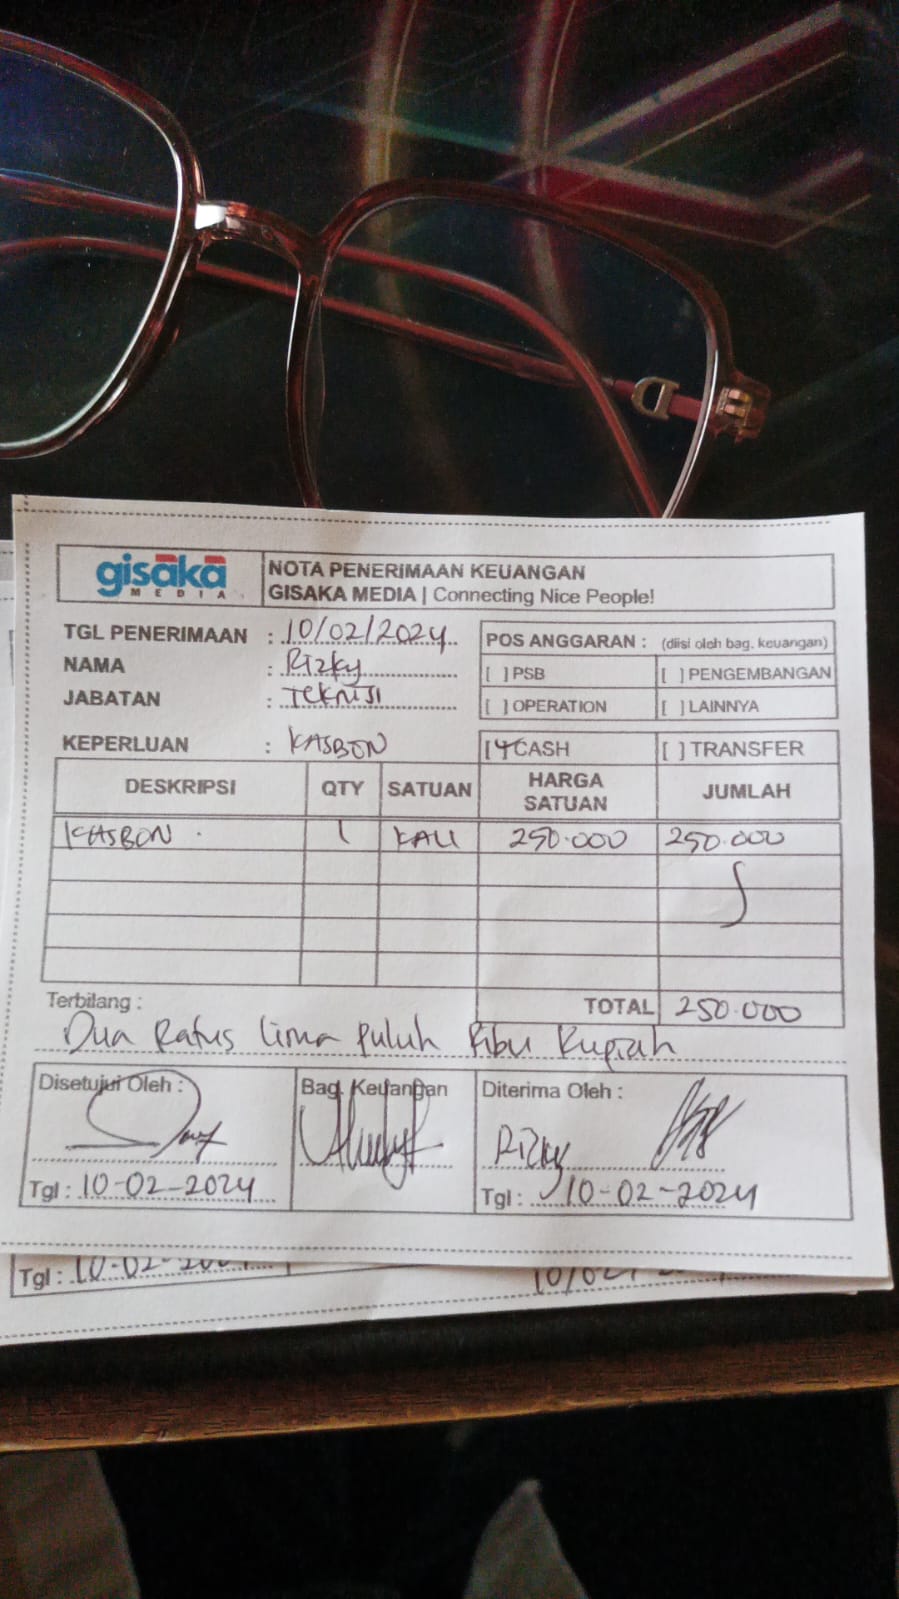 gisaka
MEDIA
NOTA PENERIMAAN KEUANGAN
GISAKA MEDIA | Connecting Nice People!
TGL PENERIMAAN : 10/02/2024
NAMA : Rizky
JABATAN : TEKNISI
POS ANGGARAN : (diisi oleh bag. keuangan)
[ ] PSB [ ] PENGEMBANGAN
[ ] OPERATION [ ] LAINNYA
KEPERLUAN : KASBON
[✓] CASH [ ] TRANSFER
DESKRIPSI QTY SATUAN HARGA SATUAN JUMLAH
KASBON 1 KALI 250.000 250.000
Terbilang : TOTAL 250.000
Dua Ratus lima puluh Ribu Rupiah
Disetujui Oleh : Bag. Keuangan Diterima Oleh :
Rizky
Tgl : 10-02-2024 Tgl : 10-02-2024
Tgl : 10-02-